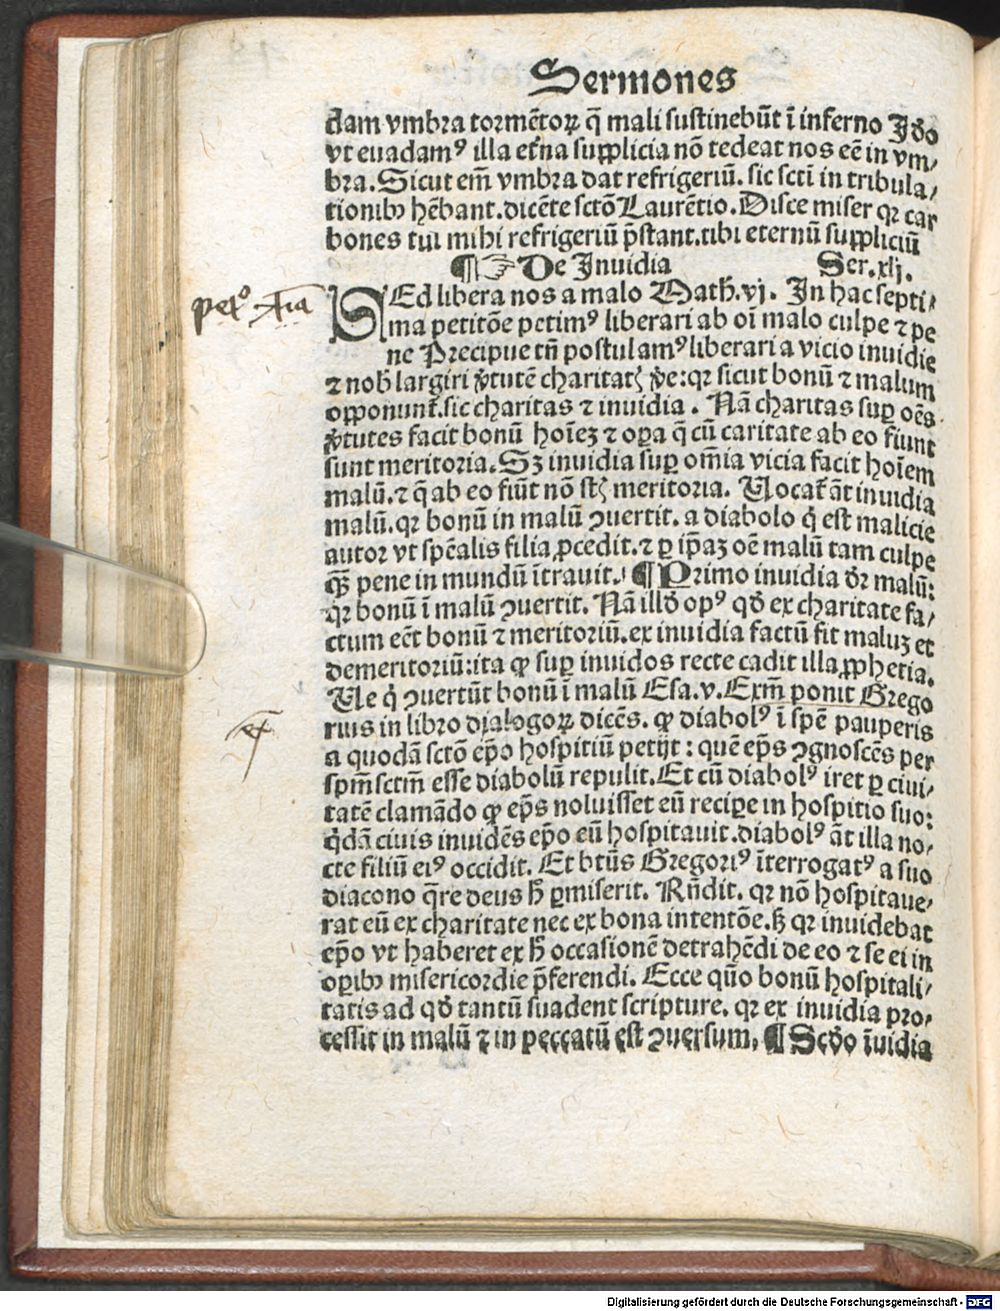 Sermones
dam vmbra tormētoꝝ q̄ mali sustinebūt ī inferno Jdo
vt euadamꝰ illa et̓na supplicia nō tedeat nos eē in vm⸗
bra. Sicut em̄ vmbra dat refrigeriū. sic scti in tribula⸗
tionibꝫ hēbant. dicēte sctō Laurētio. Disce miser qꝛ car
bones tui mihi refrigeriū p̄stant. tibi eternū suppliciū
¶ ☞ De Inuidia Ser. xlj.
SEd libera nos a malo Math. vj. In hac septi⸗
ma petitōe petimꝰ liberari ab oī malo culpe ⁊ pe
ne Precipue tn̄ postulamꝰ liberari a vicio inuidie
⁊ nob̄ largiri v̓tutē charitatꝭ v̓e: qꝛ sicut bonū ⁊ malum
opponunt̓. sic charitas ⁊ inuidia. Nā charitas suꝑ oēs
v̓tutes facit bonū hoīeꝫ ⁊ oꝑa q̄ cū caritate ab eo fiunt
sunt meritoria. Sꝫ inuidia suꝑ om̄ia vicia facit hoīem
malū. ⁊ q̄ ab eo fiūt nō st̄ meritoria. Uocat̓ āt inuidia
malū. qꝛ bonū in malū ꝯuertit. a diabolo q̇ est malicie
autor vt spēalis filia ꝓcedit. ⁊ ꝑ ip̄aꝫ oē malū tam culpe
qꝫ̄ pene in mundū ītrauit. ¶ Primo inuidia dr̄ malū:
qꝛ bonū ī malū ꝯuertit. Nā illd̓ opꝰ qd̓ ex charitate fa⸗
ctum eēt bonū ⁊ meritoriū. ex inuidia factū fit maluꝫ et
demeritoriū: ita ꝙ suꝑ inuidos recte cadit illa ꝓphetia.
Ue q̇ ꝯuertūt bonū ī malū Esa. v. Exm̄ ponit Grego
rius in libro dialogoꝝ dicēs. ꝙ diabolꝰ ī spē pauperis
a quodā sctō ep̄o hospitiū petijt: quē ep̄s ꝯgnoscēs per
spm̄ sctm̄ esse diabolū repulit. Et cū diabolꝰ iret ꝑ ciui⸗
tatē clamādo ꝙ ep̄s noluisset eū reciꝑe in hospitio suo:
q̇dā ciuis inuidēs ep̄o eū hospitauit. diabolꝰ āt illa no⸗
cte filiū eiꝰ occidit. Et btūs Gregoriꝰ īterrogatꝰ a suo
diacono q̄re deus h̄ ꝑmiserit. Rn̄dit. qꝛ nō hospitaue⸗
rat eū ex charitate nec ex bona intentōe. sꝫ qꝛ inuidebat
ep̄o vt haberet ex h̄ occasionē detrahēdi de eo ⁊ se ei in
oꝑibꝫ misericordie p̄ferendi. Ecce quō bonū hospitali⸗
tatis ad qd̓ tantū suadent scripture. qꝛ ex inuidia pro⸗
cessit in malū ⁊ in peccatū est ꝯuersum. ¶ Scd̓o īuidia
Digitalisierung gefördert durch die Deutsche Forschungsgemeinschaft - DFG